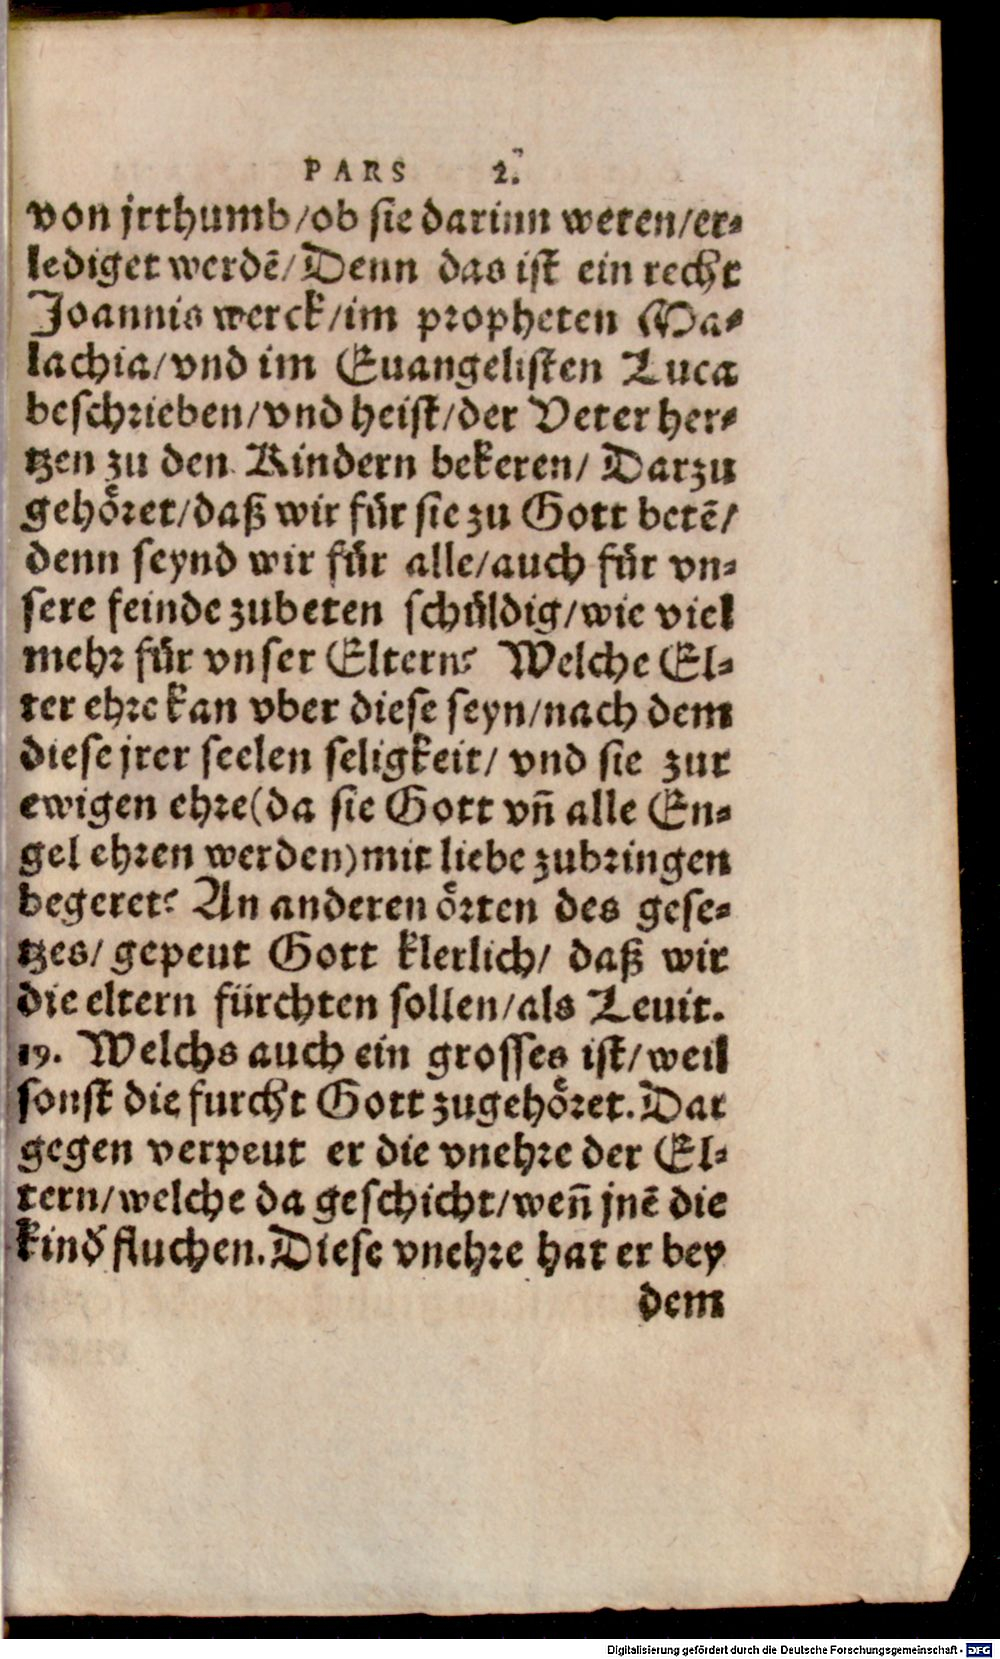 PARS 2.
von jrthumb/ob sie darinn weren/er-
lediget werdē/Denn das ist ein recht
Joannis werck/im propheten Ma-
lachia/vnd im Euangelisten Luca
beschrieben/vnd heist/der Veter her-
tzen zu den Kindern bekeren/ Darzu
gehöret/daß wir für sie zu Gott betē/
denn seynd wir für alle/auch für vn-
sere feinde zubeten schüldig/wie viel
mehr für vnser Eltern? Welche El-
ter ehre kan vber diese seyn/nach dem
diese jrer seelen seligkeit/ vnd sie zur
ewigen ehre(da sie Gott vn̄ alle En-
gel ehren werden)mit liebe zubringen
begeret? An anderen örten des gese-
tzes/ gepeut Gott klerlich/ daß wir
die eltern fürchten sollen/als Leuit.
19. Welchs auch ein grosses ist/weil
sonst die furcht Gott zugehöret. Dar
gegen verpeut er die vnehre der El-
tern/welche da geschicht/wen̄ jnē die
kind' fluchen. Diese vnehre hat er bey
dem
Digitalisierung gefördert durch die Deutsche Forschungsgemeinschaft - DFG